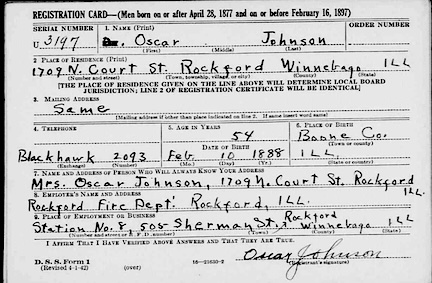 REGISTRATION CARD—(Men born on or after April 28, 1877 and on or before February 16, 1897)
SERIAL NUMBER 1. NAME (Print) ORDER NUMBER
U. 3197 Oscar Johnson
(First) (Middle) (Last)
2. PLACE OF RESIDENCE (Print)
1709 N. Court St. Rockford Winnebago ILL
(Number and street) (Town, township, village, or city) (County) (State)
[THE PLACE OF RESIDENCE GIVEN ON THE LINE ABOVE WILL DETERMINE LOCAL BOARD
JURISDICTION; LINE 2 OF REGISTRATION CERTIFICATE WILL BE IDENTICAL]
3. MAILING ADDRESS
Same
[Mailing address if other than place indicated on line 2. If same insert word same]
4. TELEPHONE 5. AGE IN YEARS 6. PLACE OF BIRTH
54 Boone Co.
DATE OF BIRTH (Town or county)
Blackhawk 2093 Feb. 10 1888 ILL.
(Exchange) (Number) (Mo.) (Day) (Yr.) (State or country)
7. NAME AND ADDRESS OF PERSON WHO WILL ALWAYS KNOW YOUR ADDRESS
Mrs. Oscar Johnson, 1709 N. Court St. Rockford
ILL.
8. EMPLOYER'S NAME AND ADDRESS
Rockford Fire Dept. Rockford, ILL.
9. PLACE OF EMPLOYMENT OR BUSINESS Rockford
Station No. 8, 505 Sherman St., Winnebago ILL
(Number and street or R. F. D. number) (Town) (County) (State)
I AFFIRM THAT I HAVE VERIFIED ABOVE ANSWERS AND THAT THEY ARE TRUE.
Oscar Johnson
D. S. S. Form 1 (Registrant's signature)
(Revised 4-1-42) (over) 16-21630-2